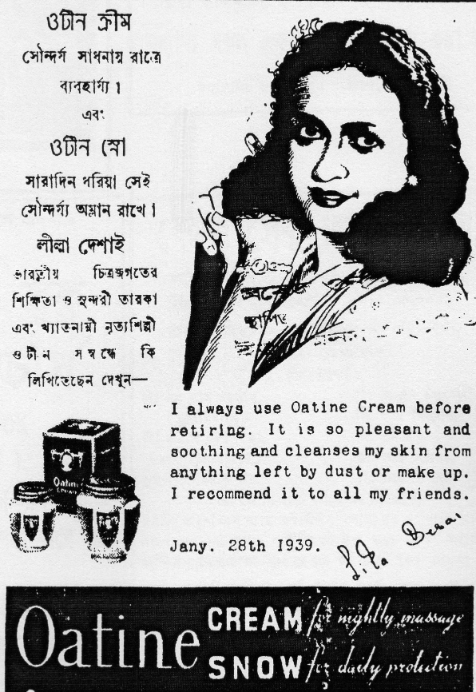 ওটীন ক্রীম
সৌন্দর্য সাধনায় রাত্রে
ব্যবহার্য্য।
এবং
ওটীন স্নো
সারাদিন ধরিয়া সেই
সৌন্দর্য্য অম্লান রাখে।
লীলা দেশাই
ভারতীয় চিত্রজগতের
শিক্ষিতা ও সুন্দরী তারকা
এবং খ্যাতনাম্নী নৃত্যশিল্পী
ওটীন সম্বন্ধে কি
লিখিতেছেন দেখুন—
I always use Oatine Cream before
retiring. It is so pleasant and
soothing and cleanses my skin from
anything left by dust or make up.
I recommend it to all my friends.
Jany. 28th 1939.
Lila Desai
Oatine
Oatine CREAM for nightly massage
SNOW for daily protection